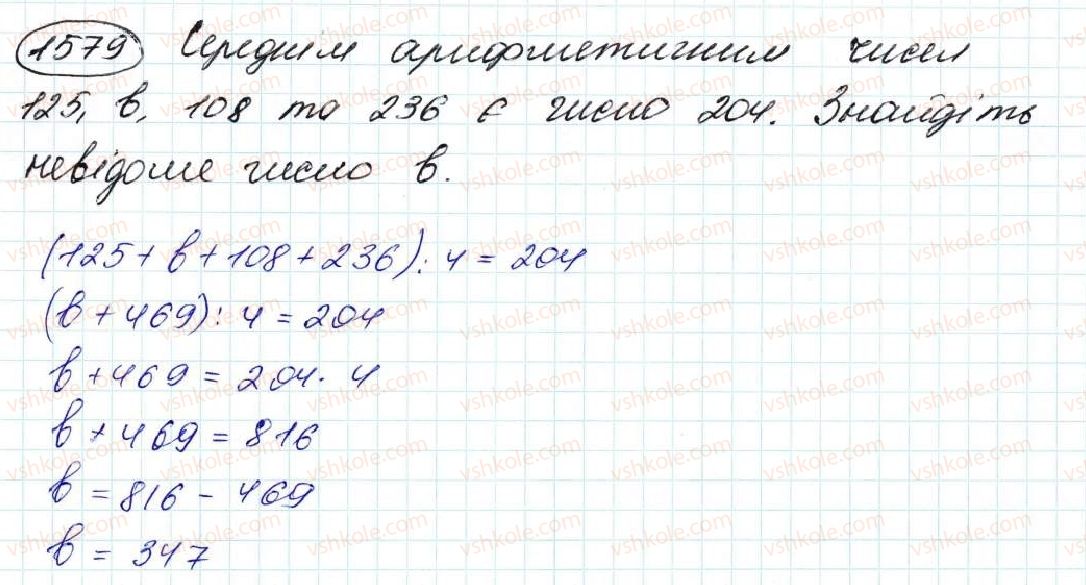 1579 Середнім арифметичним чисел
125, в, 108 та 236 є число 204. Знайдіть
невідоме число в.
(125 + в + 108 + 236) : 4 = 204
(в + 469) : 4 = 204
в + 469 = 204 · 4
в + 469 = 816
в = 816 - 469
в = 347
vshkole.com